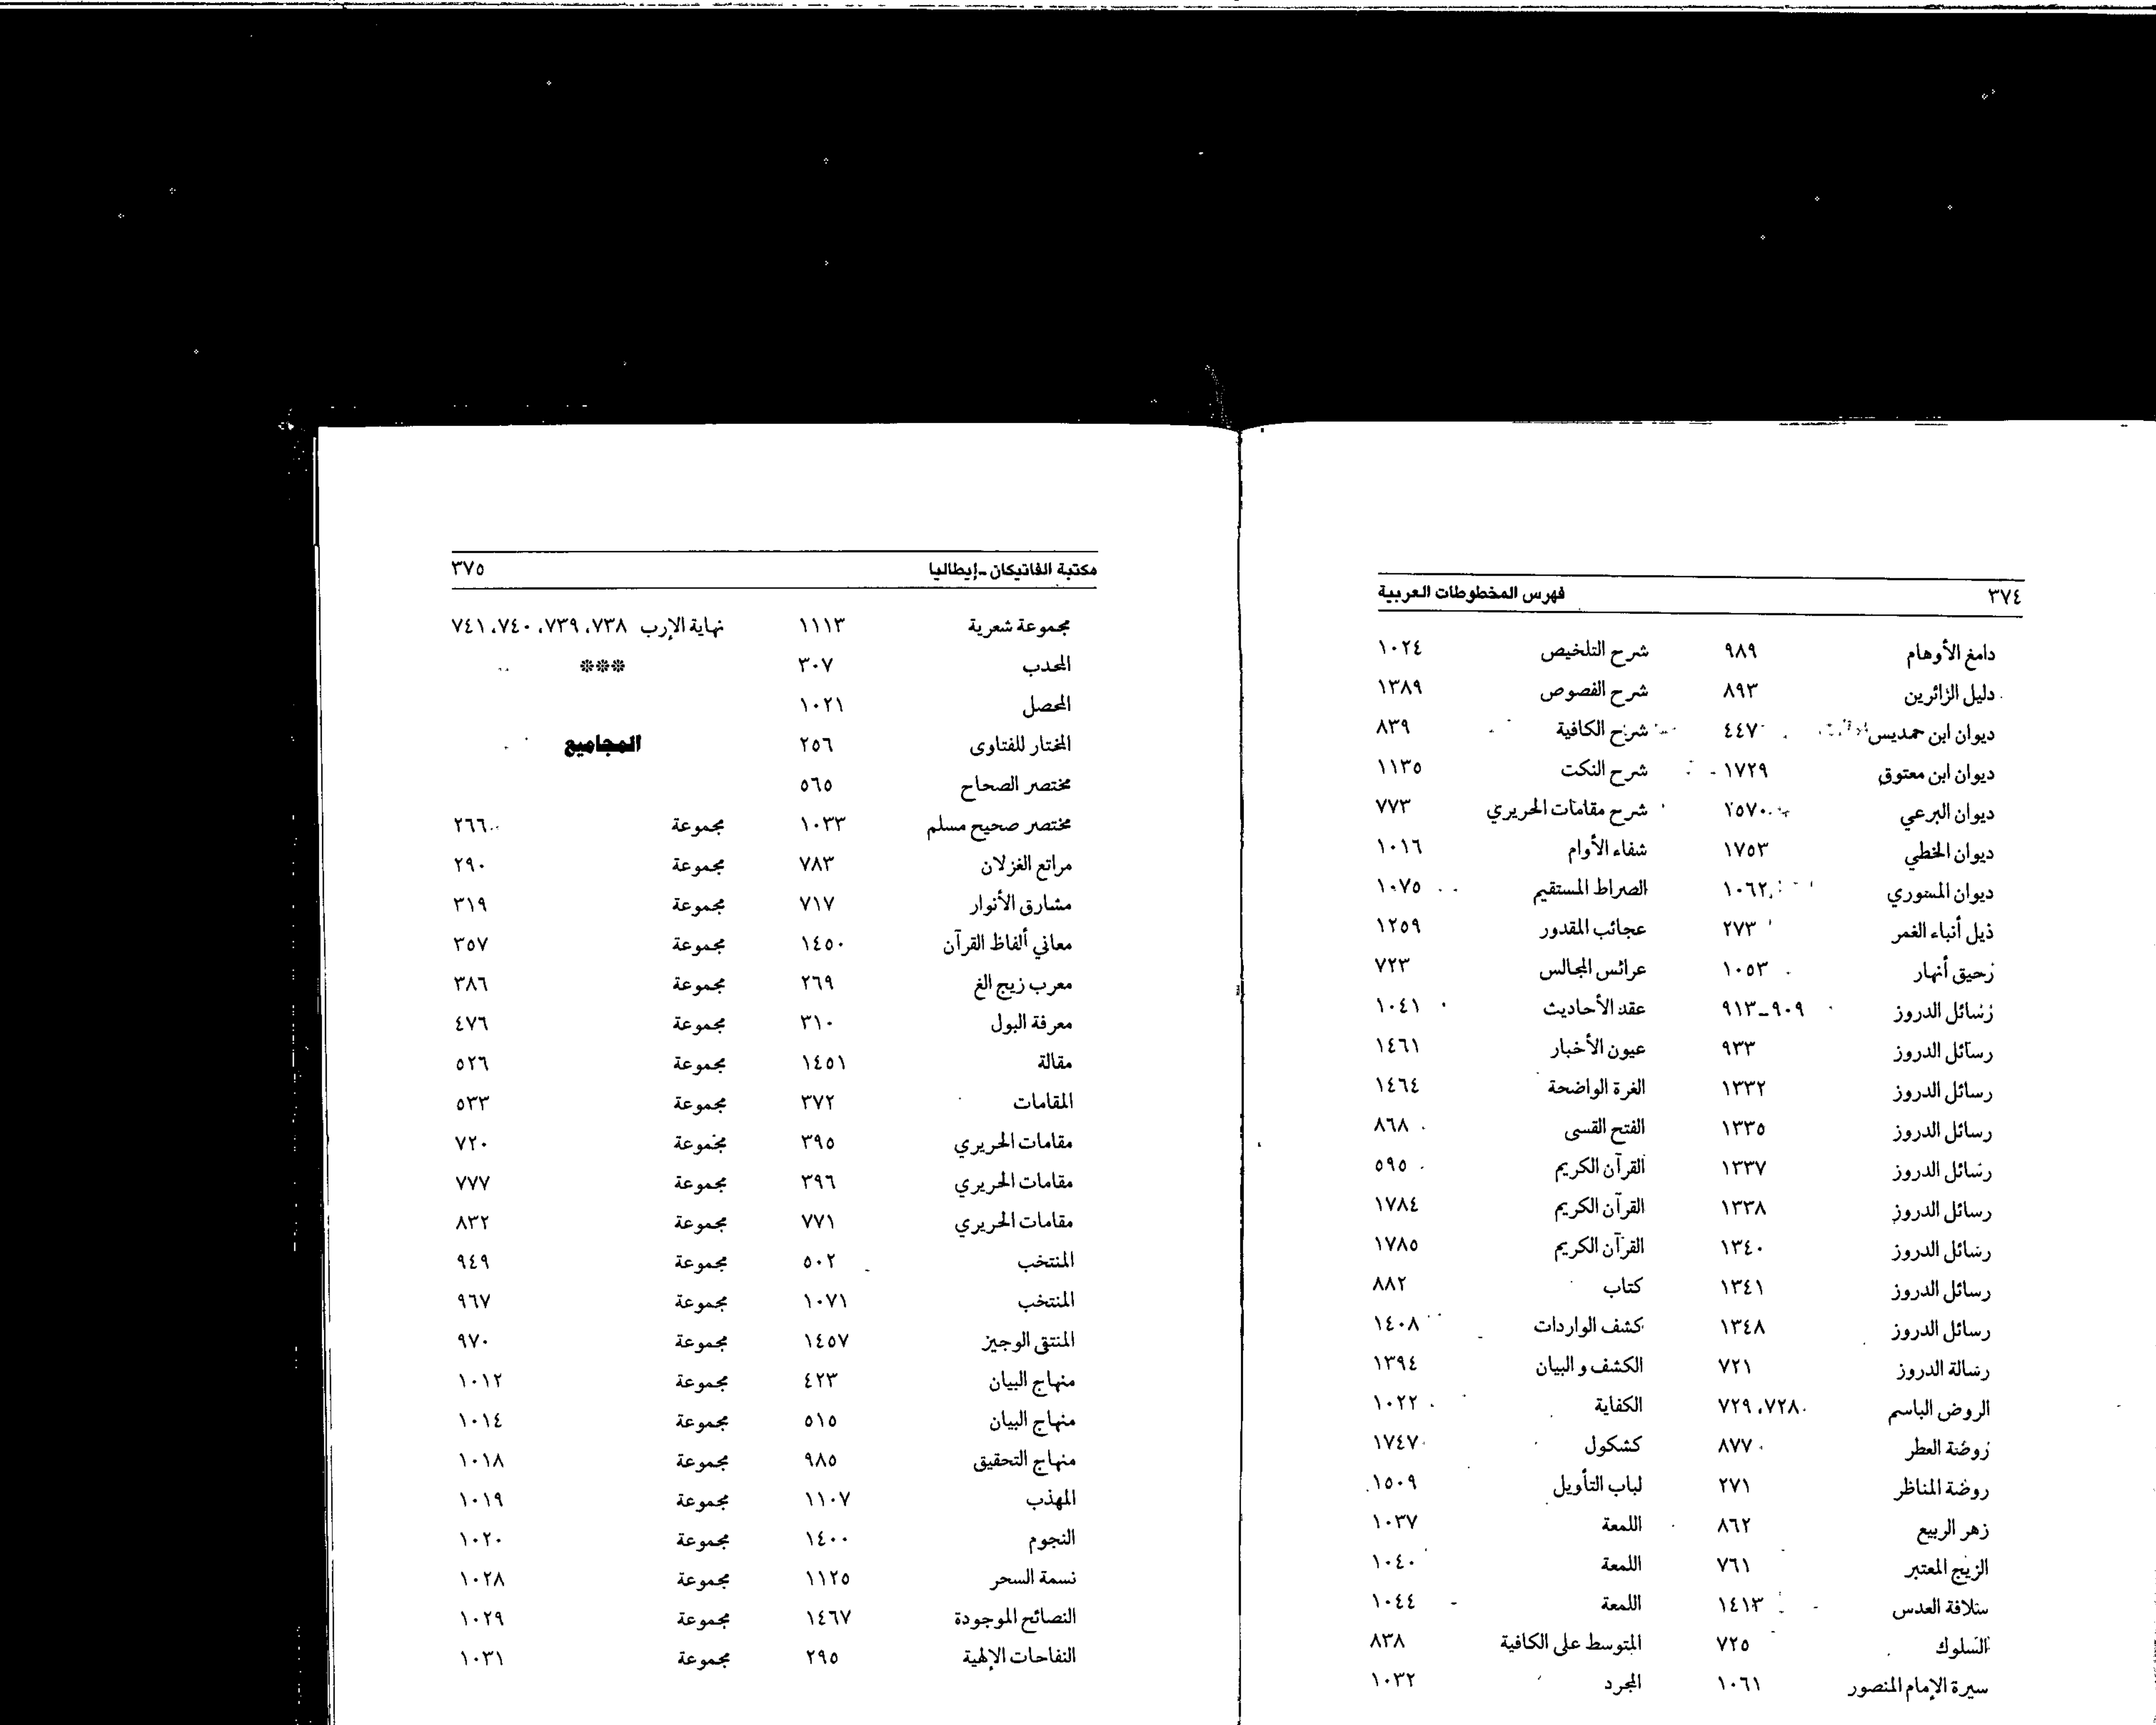 ٣٧٤ فهرس المخطوطات العربية
دامغ الأوهام ٩٨٩
دليل الزائرين ٨٩٣
ديوان ابن حمديس ٤٤٧
ديوان ابن معتوق ١٧٢٩
ديوان البرعي ١٥٧٠
ديوان الخطي ١٧٥٣
ديوان المسوري ١٠٦٢
ذيل أنباء الغمر ٢٧٣
رحيق أنهار ١٠٥٣
رسائل الدروز ٩٠٩-٩١٣
رسائل الدروز ٩٣٣
رسائل الدروز ١٣٣٢
رسائل الدروز ١٣٣٥
رسائل الدروز ١٣٣٧
رسائل الدروز ١٣٣٨
رسائل الدروز ١٣٤٠
رسائل الدروز ١٣٤١
رسائل الدروز ١٣٤٨
رسالة الدروز ٧٢١
الروض الباسم ٧٢٨، ٧٢٩
روضة العطر ٨٧٧
روضة المناظر ٢٧١
زهر الربيع ٨٦٢
الزيج المعتبر ٧٦١
سلافة العدس ١٤١٣
السلوك ٧٢٥
سيرة الإمام المنصور ١٠٦١
شرح التلخيص ١٠٢٤
شرح الفصوص ١٣٨٩
شرح الكافية ٨٣٩
شرح النكت ١١٣٥
شرح مقامات الحريري ٧٧٣
شفاء الأوام ١٠١٦
الصراط المستقيم ١٠٧٥
عجائب المقدور ١٢٥٩
عرائس المجالس ٧٢٣
عقد الأحاديث ١٠٤١
عيون الأخبار ١٤٦١
الغرة الواضحة ١٤٦٤
الفتح القسى ٨٦٨
القرآن الكريم ٥٩٥
القرآن الكريم ١٧٨٤
القرآن الكريم ١٧٨٥
كتاب ٨٨٢
كشف الواردات ١٤٠٨
الكشف و البيان ١٣٩٤
الكفاية ١٠٢٢
كشكول ١٧٤٧
لباب التأويل ١٥٠٩
اللمعة ١٠٣٧
اللمعة ١٠٤٠
اللمعة ١٠٤٤
المتوسط على الكافية ٨٣٨
المجرد ١٠٣٢
مكتبة الفاتيكان - إيطاليا ٣٧٥
مجموعة شعرية ١١١٣
المحدب ٣٠٧
المحصل ١٠٢١
المختار للفتاوى ٢٥٦
مختصر الصحاح ٥٦٥
مختصر صحيح مسلم ١٠٣٣
مراتع الغزلان ٧٨٣
مشارق الأنوار ٧١٧
معاني ألفاظ القرآن ١٤٥٠
معرب زيج الغ ٢٦٩
معرفة البول ٣١٠
مقالة ١٤٥١
المقامات ٣٧٢
مقامات الحريري ٣٩٥
مقامات الحريري ٣٩٦
مقامات الحريري ٧٧١
المنتخب ٥٠٢
المنتخب ١٠٧١
المنتقى الوجيز ١٤٥٧
منهاج البيان ٤٢٣
منهاج البيان ٥١٥
منهاج التحقيق ٩٨٥
المهذب ١١٠٧
النجوم ١٤٠٠
نسمة السحر ١١٢٥
النصائح الموجودة ١٤٦٧
النفاحات الإلهية ٢٩٥
نهاية الإرب ٧٣٨، ٧٣٩، ٧٤٠، ٧٤١
***
المجاميع
مجموعة ٢٦٦
مجموعة ٢٩٠
مجموعة ٣١٩
مجموعة ٣٥٧
مجموعة ٣٨٦
مجموعة ٤٧٦
مجموعة ٥٢٦
مجموعة ٥٣٣
مجموعة ٧٢٠
مجموعة ٧٧٧
مجموعة ٨٣٢
مجموعة ٩٤٩
مجموعة ٩٦٧
مجموعة ٩٧٠
مجموعة ١٠١٢
مجموعة ١٠١٤
مجموعة ١٠١٨
مجموعة ١٠١٩
مجموعة ١٠٢٠
مجموعة ١٠٢٨
مجموعة ١٠٢٩
مجموعة ١٠٣١